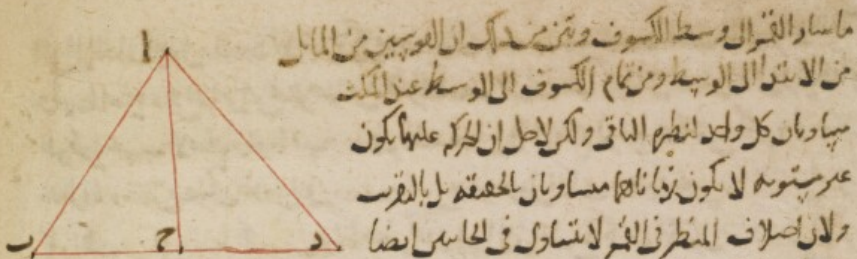 ما سار القمر الى وسط الكسوف وتبين من ذلك ان القوسين من المايل
من الابتدا الى الوسط ومن تمام الكسوف الى الوسط عند المكث
مساويان كل واحد لنظيره الباقى ولكن لاجل ان الحركه عليها يكون
غير مستويه لا يكون زماناهما متساويان بالحقيقه بل بالتقريب
ولان اختلاف المنظر فى القمر لا يتساوى فى الجانبين ايضا
ا
ب ح د